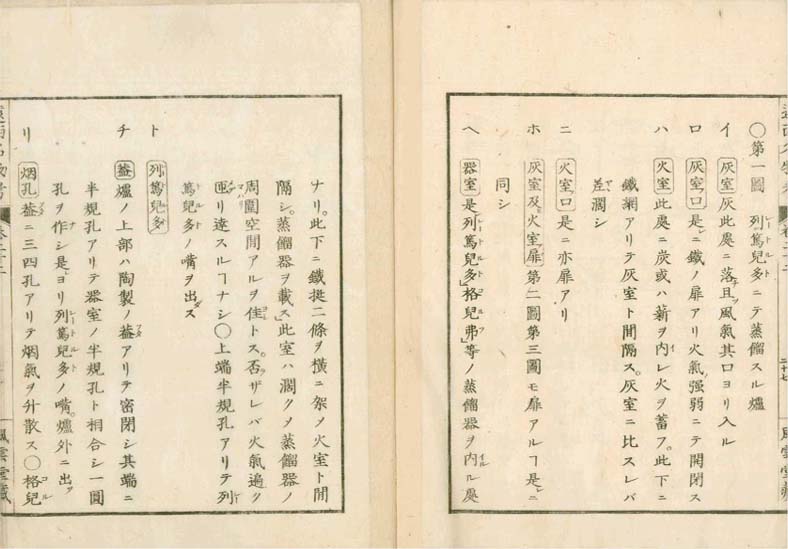 〇第一圖 列篤兒多ニテ蒸餾スル爐
イ 灰室 灰此處ニ落且ツ風氣其口ヨリ入ル
ロ 灰室ノ口 是レニ鐵ノ扉アリ火氣ノ強弱ニテ開閉ス
ハ 火室 此處ニ炭或ハ薪ヲ内レ火ヲ蓄フ。此下ニ
鐵網アリテ灰室ト間隔ス。灰室ニ比スレバ
差濶シ
ニ 火室ノ口 是ニ亦扉アリ
ホ 灰室及火室ノ扉 第二圖第三圖モ扉アルヿ是レニ
同シ
ヘ 器室 是列篤兒多」格兒弗」等ノ蒸餾器ヲ内ル處
ナリ。此下ニ鐵挺二條ヲ橫ニ架メ火室ト間
隔シ。蒸餾器ヲ載ス」此室ハ濶クメ蒸餾器ノ
周圍空間アルヲ佳トス。否ザレバ火氣遍ク
匝リ達スルヿナシ〇上端半規孔アリテ列
篤兒多ノ嘴ヲ出ス
ト 列篤兒多
チ 葢 爐ノ上部ハ陶製ノ葢アリテ密閉シ其端ニ
半規孔アリテ器室ノ半規孔ト相合シ一圓
孔ヲ作シ是ヨリ列篤兒多ノ嘴。爐外ニ出ツ
リ 烟孔 葢ニ三四孔アリテ烟氣ヲ升散ス〇格兒
二十七
風雲堂藏